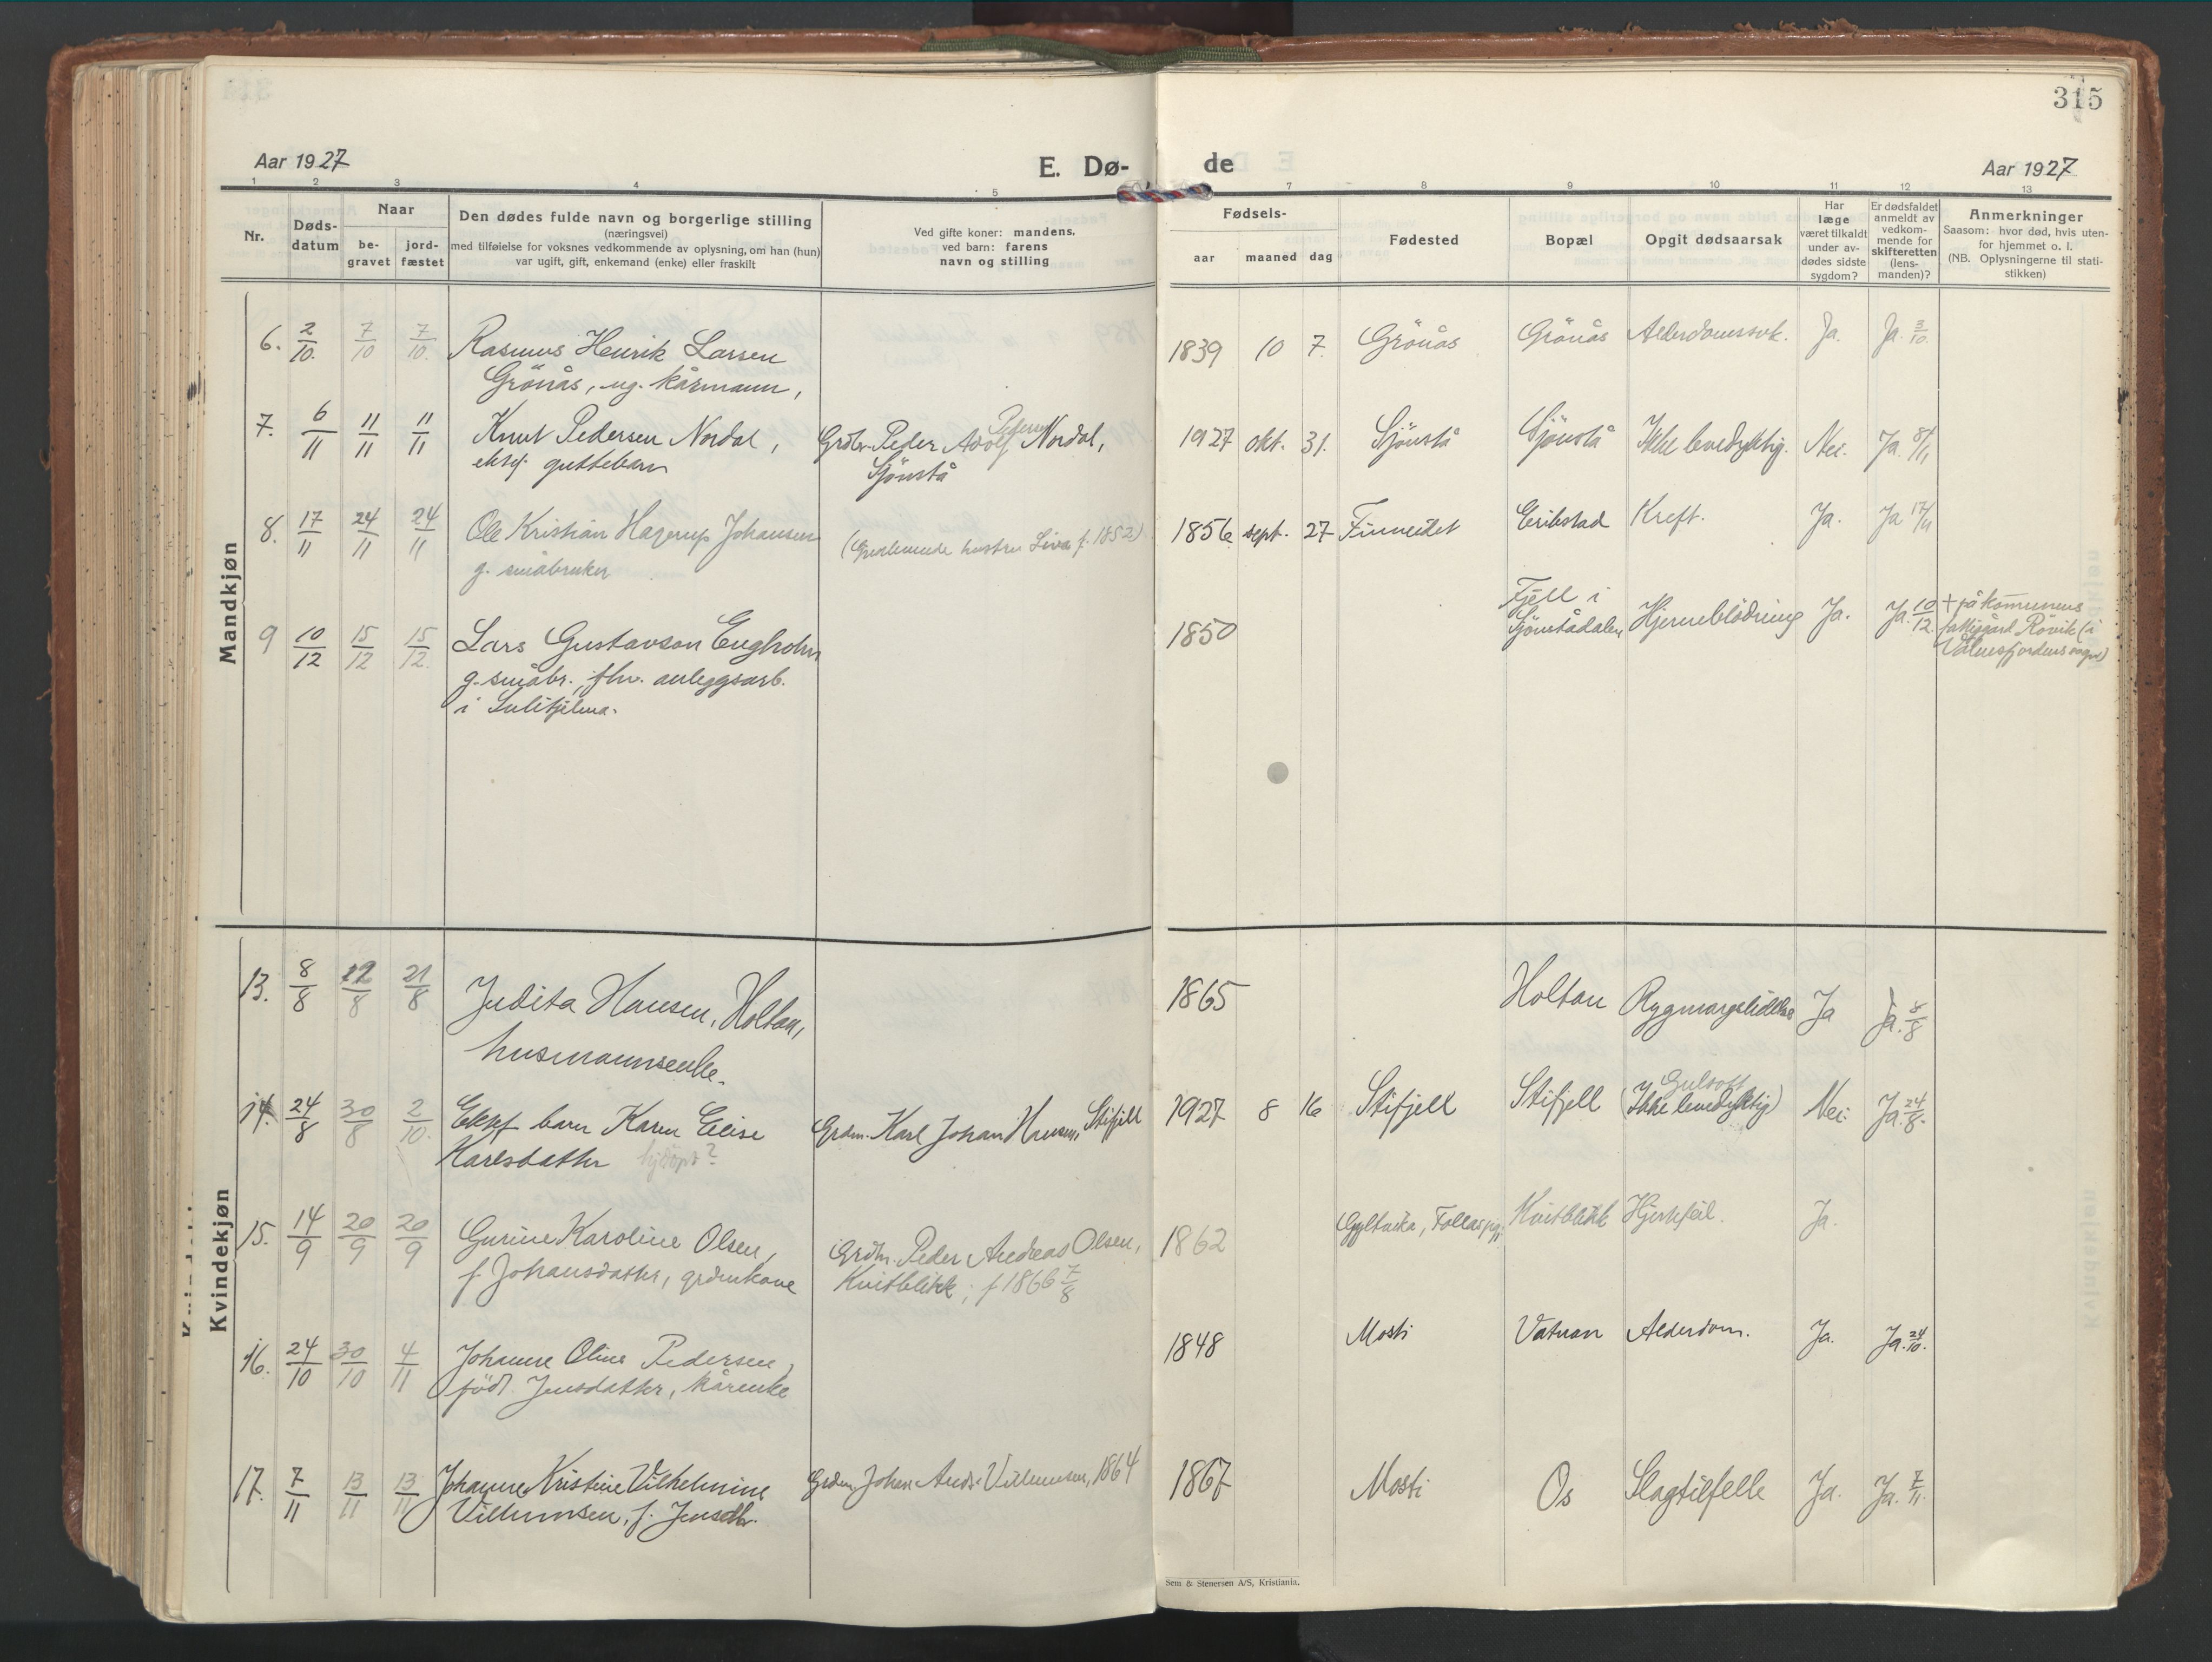 315
Aar 1927
E. Dø-
de
Aar 1927
1 2 3 4 5 7 8 9 10 11 12 13
Nr.
Døds-
datum
Naar
be-
gravet
jord-
fæstet
Den dødes fulde navn og borgerlige stilling
(næringsvei)
med tilføielse for voksnes vedkommende av oplysning, om han (hun)
var ugift, gift, enkemand (enke) eller fraskilt
Ved gifte koner: mandens,
ved barn: farens
navn og stilling
Fødsels-
aar maaned dag
Fødested
Bopæl
Opgit dødsaarsak
Har
læge
været tilkaldt
under av-
dødes sidste
sygdom?
Er dødsfaldet
anmeldt av
vedkom-
mende for
skifteretten
(lens-
manden)?
Anmerkninger
Saasom: hvor død, hvis uten-
for hjemmet o. l.
(NB. Oplysningerne til stati-
stikken)
Mandkjøn
6. 2/10. 7/10 7/10. Rasmus Henrik Larsen 1839 10 7. Grönås Grönås Alderdomssvk. Ja. Ja. 3/10.
Grönås, ug. kårmann,
7. 6/11 11/11 11/11 Knut Pedersen Nordal, Grdbr. Peder Adolf Pedersen Nordal, 1927 okt. 31. Sjönstå Sjönstå Ikke levedyktig. Nei. Ja. 8/11
ektef. guttebarn Sjönstå
8. 17/11 24/11 24/11 Ole Kristian Hagerup Johansen (Gjenlevende hustru Liva f. 1852) 1856 sept. 27 Finneidet Erikstad Kreft. Ja. Ja 17/11
g. småbruker
9 10/12 15/12 15/12. Lars Gustavson Engholm 1850 Fjell i Sjönstådalen Hjerneblödning Ja. Ja. 10/12. + på kommunens
g. småbr., fhv. anleggsarb. fattiggård Rövik (i
i Sulitjelma. Valnesfjordens sogn)
Kvindekjøn
13. 8/8 12/8 21/8 Judita Hansen, Holtan, 1865 Holtan Rygmargslidelse Ja Ja. 8/8
husmannsenke.
14. 24/8 30/8 2/10. Ektf barn Karen Elise Grdm. Karl Johan Hansen, Stifjell 1927 8 16 Stifjell Stifjell Gulsott (Ikke levedyktig) Nei. Ja. 24/8.
Karlsdatter hjdöpt?
15. 14/9 20/9 20/9 Gurine Karoline Olsen, Grdm. Peder Andreas Olsen, 1862 Kvitblikk Hjertefeil. Ja.
f. Johansdatter, grdmkone Kvitblikk; f 1866 7/8
16. 24/10 30/10 4/11 Johanne Oline Pedersen, 1848 Mosti Vatnan Alderdom. Ja. Ja. 24/10.
född Jensdatter, kårenke
17. 7/11 13/11 13/11 Johanne Kristine Vilhelmine Grdm. Johan Andr. Villumsen, 1864 1867 Mosti Os Slagtilfelle Ja. Ja. 7/11.
Villumsen, f. Jensdtr.
Sem & Stenersen A/S, Kristiania.